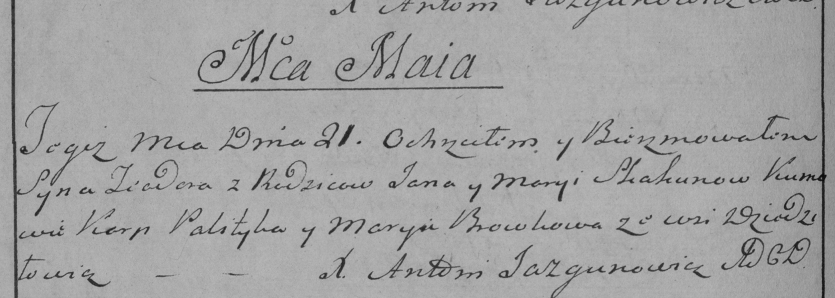 X Antoni Jazgunowicz
Mca Maia
Tegiż Mca Dnia 21. Ochrzciłem y Bierzmowałem
Syna Teodora z Rodzicow Jana y Maryi Skakunow Kumo
wie Karp Palstyka y Marya Browkowa ze wsi Dziedzi
łowicz — — X. Antoni Jazgunowicz ADCD